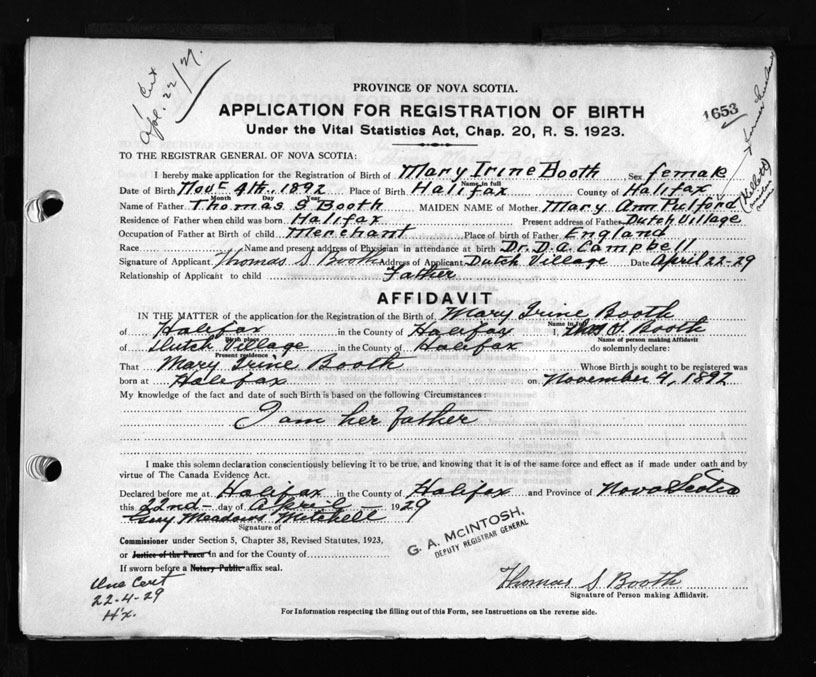 1 Cert
Apl. 22/29.
PROVINCE OF NOVA SCOTIA.
APPLICATION FOR REGISTRATION OF BIRTH
1653
Under the Vital Statistics Act, Chap. 20, R. S. 1923.
TO THE REGISTRAR GENERAL OF NOVA SCOTIA:
I hereby make application for the Registration of Birth of Mary Irine Booth Sex female
Name in full
Date of Birth Novr 4th, 1892 Place of Birth Halifax County of Halifax
Month Day Year
Name of Father Thomas S Booth MAIDEN NAME of Mother Mary Ann Pulford
Residence of Father when child was born Halifax Present address of Father Dutch Village
Occupation of Father at Birth of child Merchant Place of birth of Father England
Race Name and present address of Physician in attendance at birth Dr. D. A. Campbell
Signature of Applicant Thomas S Booth Address of Applicant Dutch Village Date April 22-29
Relationship of Applicant to child Father
AFFIDAVIT
IN THE MATTER of the application for the Registration of the Birth of Mary Irine Booth
Name in full
of Halifax in the County of Halifax I, Thos S. Booth
Birth place Name of person making Affidavit
of Dutch Village in the County of Halifax do solemnly declare:
Present residence
That Mary Irine Booth Whose Birth is sought to be registered was
born at Halifax on November 4, 1892
My knowledge of the fact and date of such Birth is based on the following Circumstances:
I am her father
I make this solemn declaration conscientiously believing it to be true, and knowing that it is of the same force and effect as if made under oath and by
virtue of The Canada Evidence Act.
Declared before me at Halifax in the County of Halifax and Province of Nova Scotia
this 22nd day of April 1929
Guy Meadows Mitchell
Signature of
G. A. McINTOSH,
DEPUTY REGISTRAR GENERAL
Commissioner under Section 5, Chapter 38, Revised Statutes, 1923,
or Justice of the Peace in and for the County of
If sworn before a Notary Public affix seal.
One Cert
22-4-29
H'x.
Thomas S Booth
Signature of Person making Affidavit.
For Information respecting the filling out of this Form, see Instructions on the reverse side.